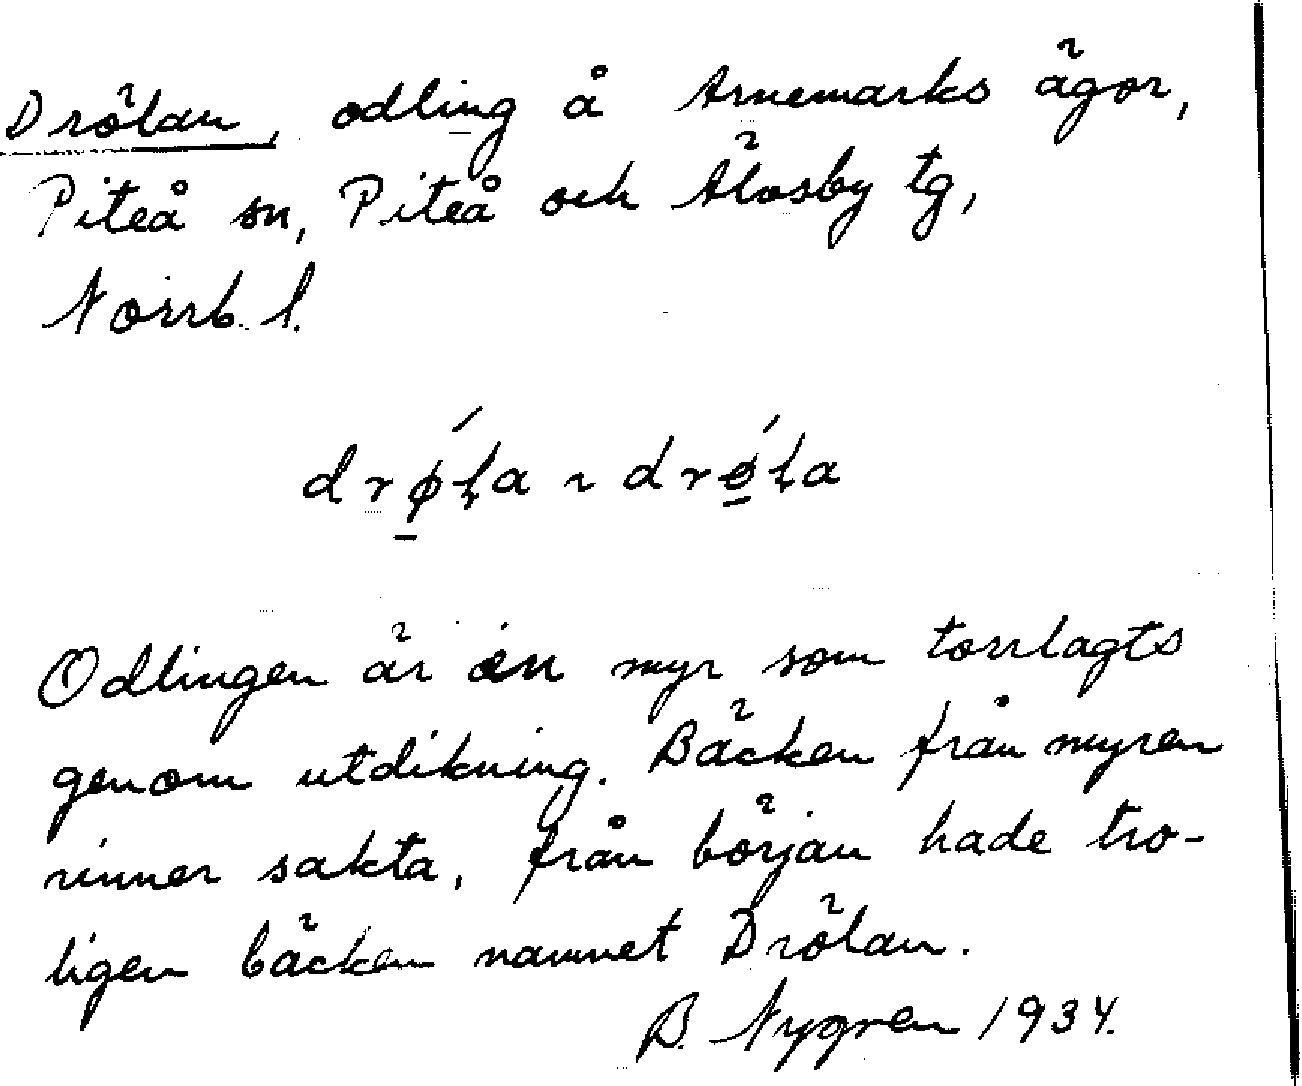 Drölan, odling å Arnemarks ägor,
Piteå sn, Piteå och Älvsby tg,
Norrb. l.
drǿ̱ɫa ~ drǿ̱ɫa
Odlingen är en myr som torrlagts
genom utdikning. Bäcken från myren
rinner sakta, från början hade tro-
ligen bäcken namnet Drölan.
B. Nygren 1934.